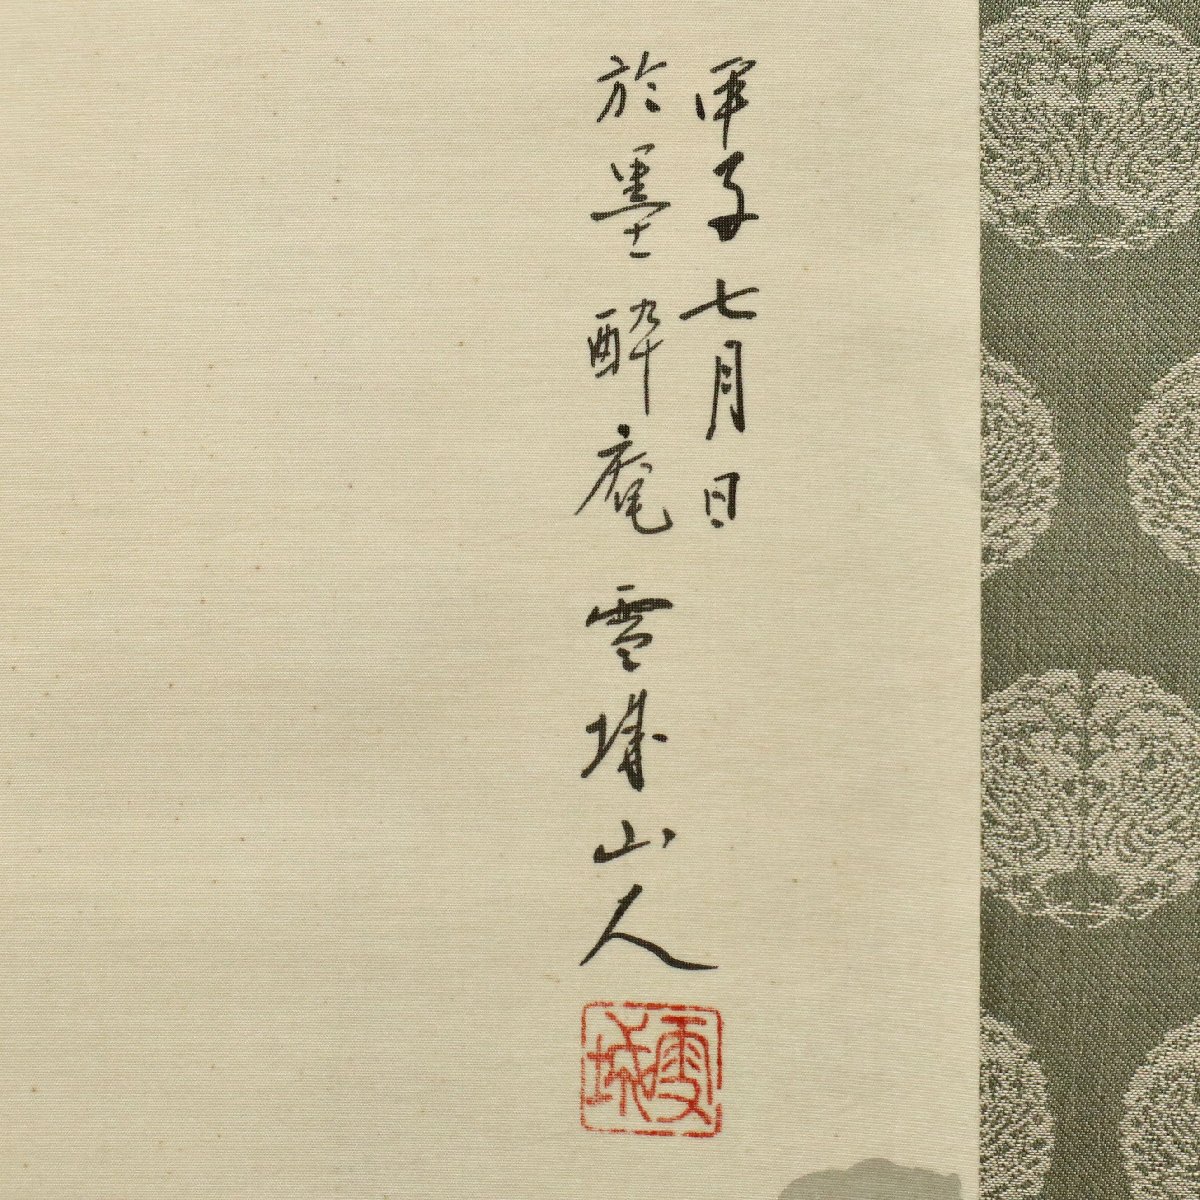 甲子七月日
於墨酔庵 雪城山人
雪城